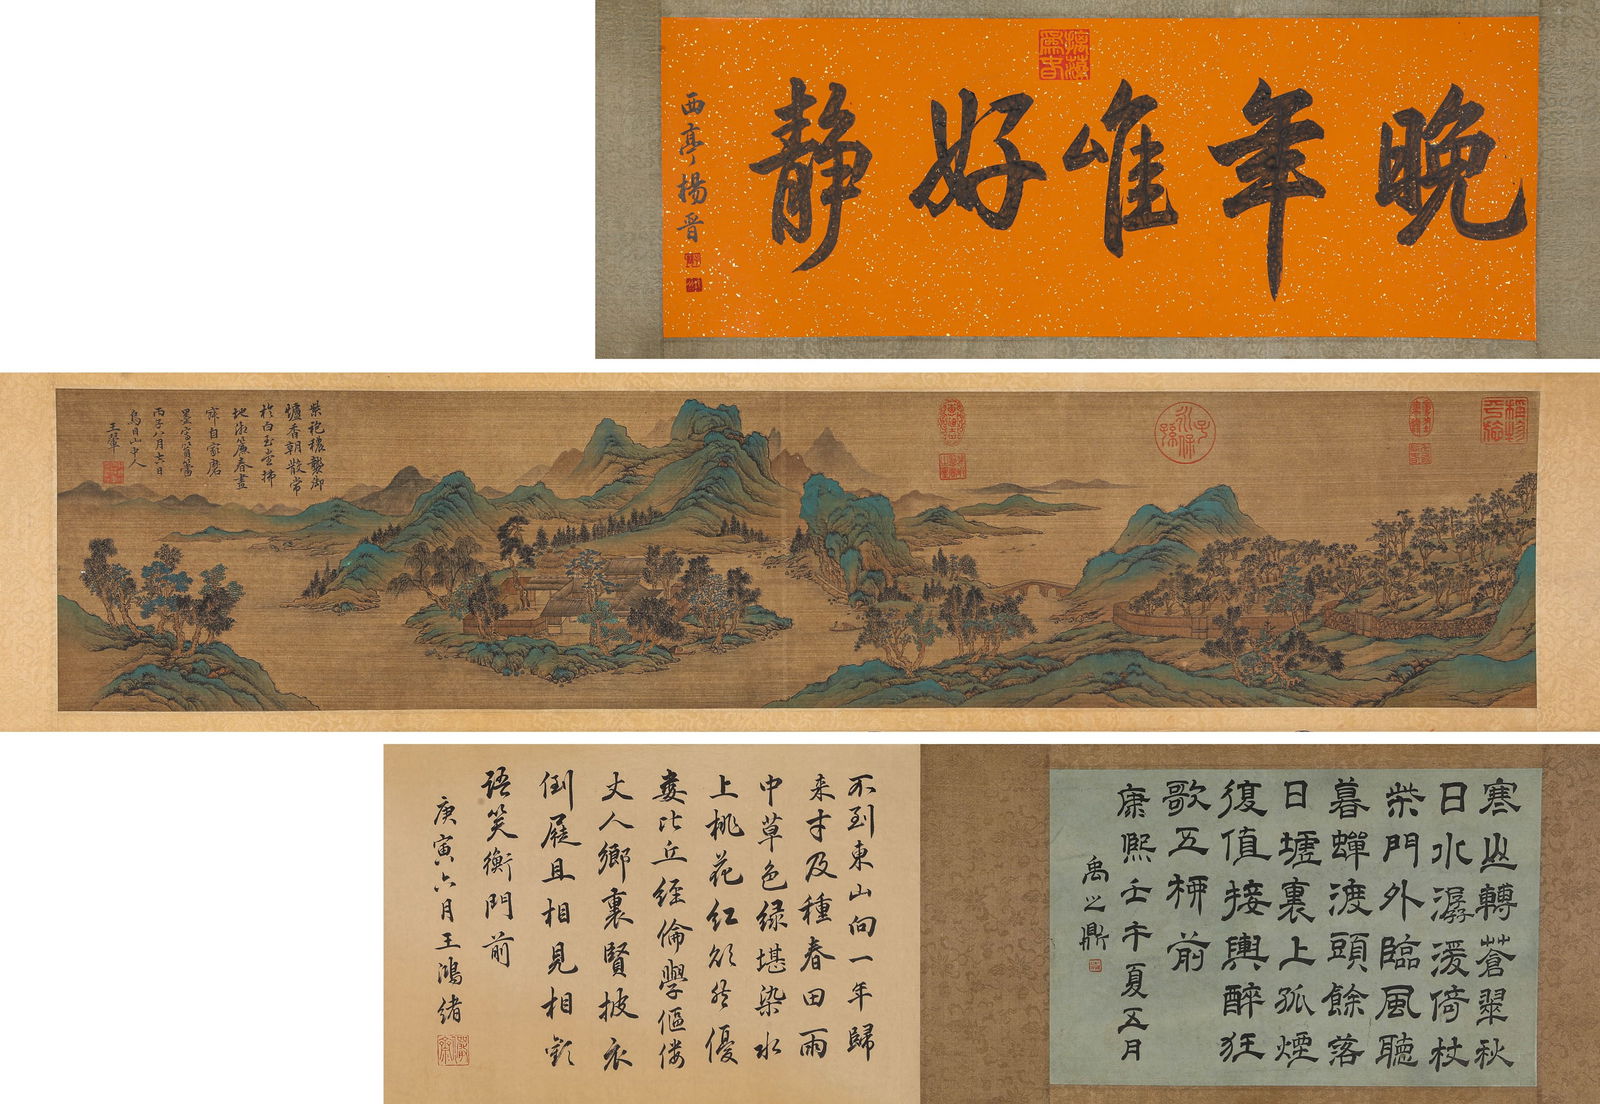 晚年唯好靜
西亭楊晉
紫袍穠襲御
爐香朝散常
於白玉堂拂
地湘簾春晝
寂自家磨
墨寫篔簹
丙子八月十六日
烏目山中人
王翬
寒山轉蒼翠秋
日水潺湲倚杖
柴門外臨風聽
暮蟬渡頭餘落
日墟裏上孤煙
復值接輿醉狂
歌五柳前
康熙壬午夏五月
禹之鼎
不到東山向一年歸
来才及種春田雨
中草色緑堪染水
上桃花紅欲然優
婁比丘經倫學傴僂
丈人鄉裏賢披衣
倒屣且相見相歡
語笑衡門前
庚寅六月王鴻緒